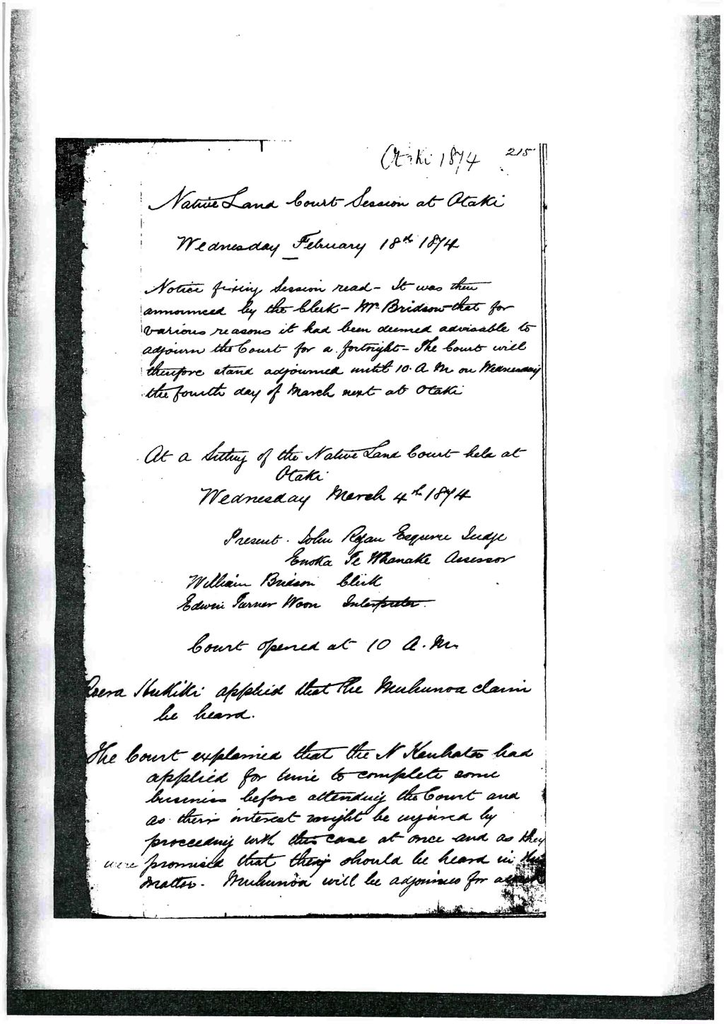 Otaki 1874 215
Native Land Court Session at Otaki
Wednesday February 18th 1874
Notice fixing Session read - It was then
announced by the Clerk - Mr Bridson that for
various reasons it had been deemed advisable to
adjourn the Court for a fortnight - The Court will
therefore stand adjourned until 10 A M on Wednesday
the fourth day of March next at Otaki
At a Sitting of the Native Land Court held at
Otaki
Wednesday March 4th 1874
Present - John Rogan Esquire Judge
Enoka Te Whanake Assessor
William Bridson Clerk
Edwin Turner Woon Interpreter
Court opened at 10 A.M.
Hukiki applied that the Muhunoa claim
be heard.
The Court explained that the N Raukatoa had
applied for time to complete some
business before attending the Court and
as their interest might be injured by
proceeding with this case at once and as they
were promised that they should be heard in this
matter. Muhunoa will be adjourned for a